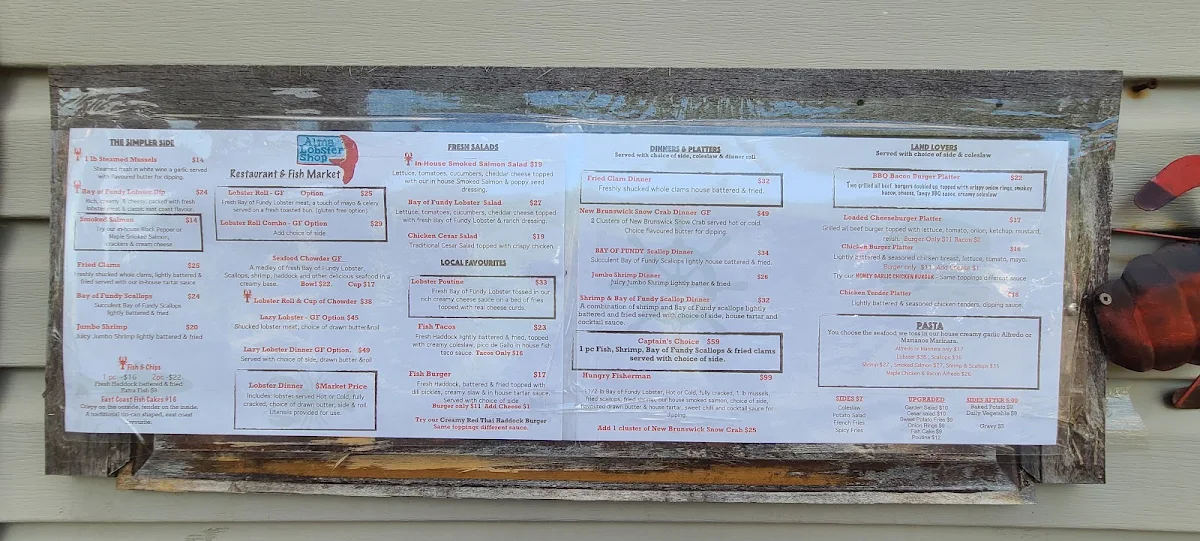 THE SIMPLER SIDE
1 lb Steamed Mussels $14
Steamed fresh in white wine & garlic, served
with flavoured butter for dipping.
Bay of Fundy Lobster Dip $24
Rich, creamy & cheesy, packed with fresh
lobster meat & classic east coast flavour.
Smoked Salmon $14
Try our in-house Black Pepper or
Maple Smoked Salmon,
crackers & cream cheese
Fried Clams $25
Freshly shucked whole clams, lightly battered &
fried served with our in-house tartar sauce
Bay of Fundy Scallops $24
Succulent Bay of Fundy Scallops
lightly battered & fried
Jumbo Shrimp $20
Juicy Jumbo Shrimp lightly battered & fried
Fish & Chips
1 pc -$16 2pc -$22
Fresh Haddock battered & fried
Extra Fish $9
East Coast Fish Cakes $16
Crispy on the outside, tender on the inside.
A traditional tip-can styled, east coast
favourite.
Alma
Lobster
Shop
Restaurant & Fish Market
Lobster Roll - GF Option $25
Fresh Bay of Fundy Lobster meat, a touch of mayo & celery
served on a fresh toasted bun. (gluten free option)
Lobster Roll Combo - GF Option $29
Add choice of side
Seafood Chowder GF
A medley of fresh Bay of Fundy Lobster,
Scallops, shrimp, haddock and other delicious seafood in a
creamy base. Bowl $22. Cup $17
Lobster Roll & Cup of Chowder $38
Lazy Lobster - GF Option $45
Shucked lobster meat, choice of drawn butter&roll
Lazy Lobster Dinner GF Option. $49
Served with choice of side, drawn butter &roll
Lobster Dinner $Market Price
Includes: lobster served Hot or Cold, fully
cracked, choice of drawn butter, side & roll.
Utensils provided for use.
FRESH SALADS
In-House Smoked Salmon Salad $19
Lettuce, tomatoes, cucumbers, cheddar cheese topped
with our in house Smoked Salmon & poppy seed
dressing.
Bay of Fundy Lobster Salad $27
Lettuce, tomatoes, cucumbers, cheddar cheese topped
with fresh Bay of Fundy Lobster & ranch dressing.
Chicken Cesar Salad $19
Traditional Cesar Salad topped with crispy chicken
LOCAL FAVOURITES
Lobster Poutine $33
Fresh Bay of Fundy Lobster tossed in our
rich creamy cheese sauce on a bed of fries
topped with real cheese curds.
Fish Tacos $23
Fresh Haddock lightly battered & fried, topped
with creamy coleslaw, pico de Gallo in house fish
taco sauce. Tacos Only $16
Fish Burger $17
Fresh Haddock, battered & fried topped with
dill pickles, creamy slaw & in house tartar sauce.
Served with choice of side
Burger only $11 Add Cheese $1
Try our Creamy Red Thai Haddock Burger
Same toppings different sauce.
DINNERS & PLATTERS
Served with choice of side, coleslaw & dinner roll
Fried Clam Dinner
Freshly shucked whole clams house battered & fried.
New Brunswick Snow Crab Dinner GF $49
2 Clusters of New Brunswick Snow Crab served hot or cold.
Choice flavoured butter for dipping.
BAY OF FUNDY Scallop Dinner $34
Succulent Bay of Fundy Scallops lightly house battered & fried.
Jumbo Shrimp Dinner $26
Juicy Jumbo Shrimp lightly batter & fried
Shrimp & Bay of Fundy Scallop Dinner $32
A combination of shrimp and Bay of Fundy scallops lightly
battered and fried served with choice of side, house tartar and
cocktail sauce.
Captain's Choice $59
1 pc Fish, Shrimp, Bay of Fundy Scallops & fried clams
served with choice of side.
Hungry Fisherman $99
1 1/2 lb Bay of Fundy Lobster, Hot or Cold, fully cracked, 1 lb mussels,
fried scallops, fried shrimp, our house smoked salmon, choice of side,
flavoured drawn butter & house tartar, sweet chili and cocktail sauce for
dipping.
Add 1 cluster of New Brunswick Snow Crab $25
LAND LOVERS
Served with choice of side & coleslaw
BBQ Bacon Burger Platter $22
Two grilled all beef, burgers doubled up, topped with crispy onion rings, smokey
bacon, cheese, tangy BBQ sauce, creamy coleslaw
Loaded Cheeseburger Platter $17
Grilled all beef burger topped with lettuce, tomato, onion, ketchup, mustard,
relish. Burger Only $11 Bacon $2
Chicken Burger Platter $16
Lightly battered & seasoned chicken breast, lettuce, tomato, mayo.
Burger only $11 Add Cheese $1
Try our HONEY GARLIC CHICKEN BURGER - Same toppings different sauce
Chicken Tender Platter $16
Lightly battered & seasoned chicken tenders, dipping sauce.
PASTA
You choose the seafood we toss in our house creamy garlic Alfredo or
Mamanos Marinara.
Alfredo or Marinara only $17
Lobster $35 Scallops $36
Shrimp $27 Smoked Salmon $27, Shrimp & Scallops $35
Maple Chicken & Bacon Alfredo $26
SIDES $7
Coleslaw
Potato Salad
French Fries
Spicy Fries
UPGRADED
Garden Salad $10
Cesar salad $10
Sweet Potato Fries $9
Onion Rings $9
Fish Cake $9
Poutine $12
SIDES AFTER 5:00
Baked Potato $9
Daily Vegetable $9
Gravy $3